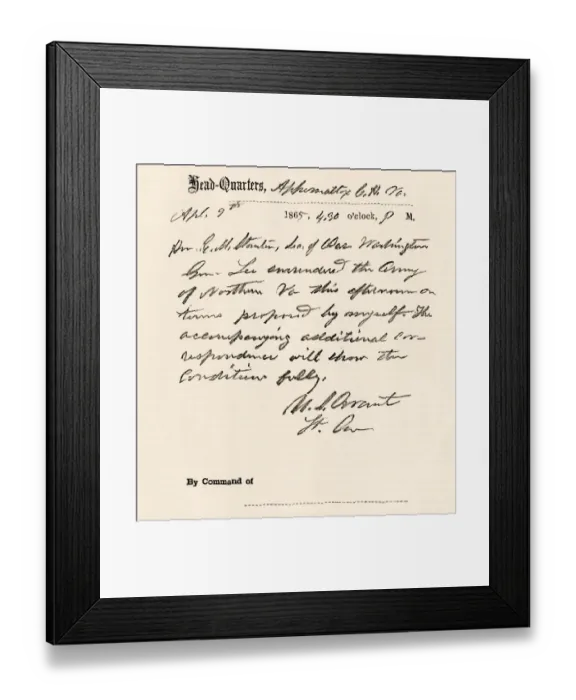 Head-Quarters, Appomattox C.H. Va.
Apl. 9th 1865. 4.30 o'clock, P M.
Hon. E. M. Stanton, Sec. of War Washington
Gen. Lee surrendered the Army
of Northern Va this afternoon on
terms proposed by myself. The
accompanying additional cor-
respondence will show the
Conditions fully.
U. S. Grant
Lt. Gen
By Command of